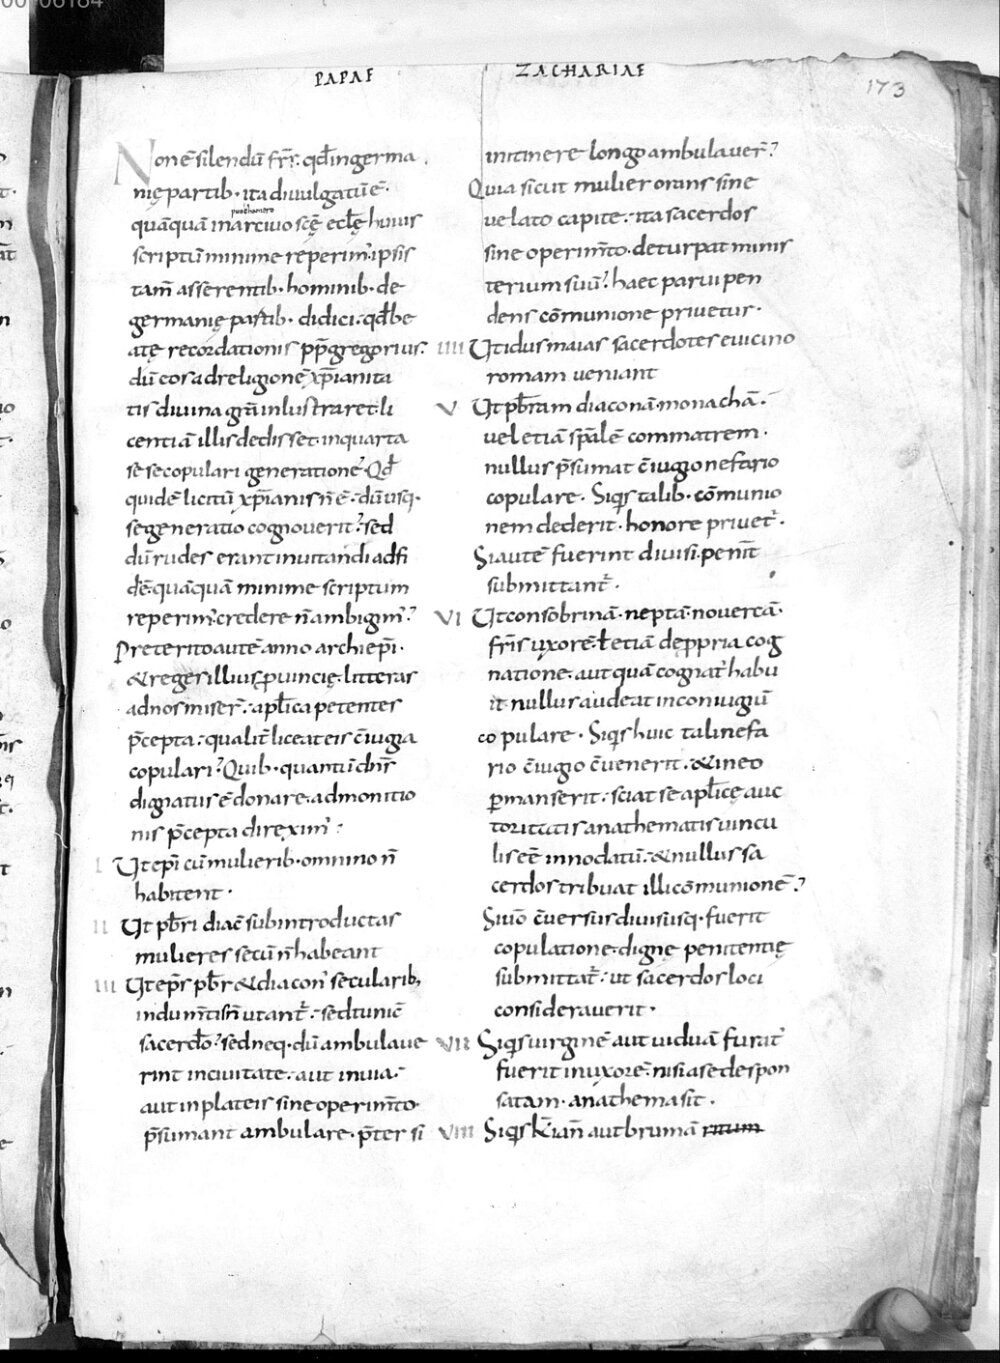 PAPAE ZACHARIAE
173
Non ē silendū fr̄r̄. qđ in germa
nię partib· ita divulgatū ē·
quāquā in arcivo scę̄ eccłę huius
scriptū minime reperim; ipsis
tam̄ asserentib· hominib· de
germanię partib· didici. qđ be
atę recordationis pp̄ gregorius.
dū eos ad religionē xp̄ianita
tis divina gr̄ā inlustraret. li
centiā illis dedisset. in quarta
se se copulari generatione. Qđ
quidē licitū xp̄ianis n̄ ē. dū usq·
se generatio cognoverit; sed
dū rudes erant invitandi ad fi
dē. quāquā minime scriptum
reperim; credere n̄ ambigim;
Preterito autē anno archiep̄i·
& reges illius provincię. litteras
ad nos miser̄. apłica petentes
p̄cepta. qualit̄ liceat eis c̄iugia
copulari; Quib· quantū dn̄s
dignatus ē donare. admonitio
nis p̄cepta direxim;
I Ut ep̄i cū mulierib· omnino n̄
habitent·
II Ut pb̄ri diac̄ subintroductas
mulieres secū n̄ habeant
III Ut ep̄s pb̄r & diacon̄ secularib;
indum̄tis n̄ utant̄. sed tunic̄
sacerđo; sed neq· dū ambulave
rint in civitate. aut in via.
aut in plateis sine operim̄to·
p̄sumant ambulare. p̄ter si
in itinere longo ambulaver̄;
Quia sicut mulier orans sine
velato capite. ita sacerdos
sine operim̄to. deturpat minis
terium suū; haec parvi pen
dens cōmunione privetur·
IIII Ut idus maias sacerdotes e vicino
romam veniant
V Ut pb̄ram diaconā. monachā.
vel etiā sp̄alē commatrem·
nullus p̄sumat c̄iugio nefario
copulare. Siq̄s talib· cōmunio
nem dederit. honore privet̄·
Si autē fuerint divisi. penit̄
submittant̄·
VI Ut consobrinā. neptā. novercā.
fr̄is uxorē. ł etiā de propria cog
natione. aut quā cognat; habu
it nullus audeat in coniugiū
copulare. Siq̄s huic tali nefa
rio c̄iugio c̄venerit. & in eo
p̄manserit. sciat se apłicę auc
toritatis anathematis vincu
lis eē innodatū. & nullus sa
cerdos tribuat illi cōmunionē;
Si v̄o c̄versus divisusq· fuerit
copulatione. dignę penitentię
submittat̄. ut sacerdos loci
consideraverit·
VII Siq̄s virginē aut viduā furat;
fuerit in uxorē. nisi a se despon
satam. anathema sit.
VIII Siq̄s k̄l̄ian̄ aut brumā ritum